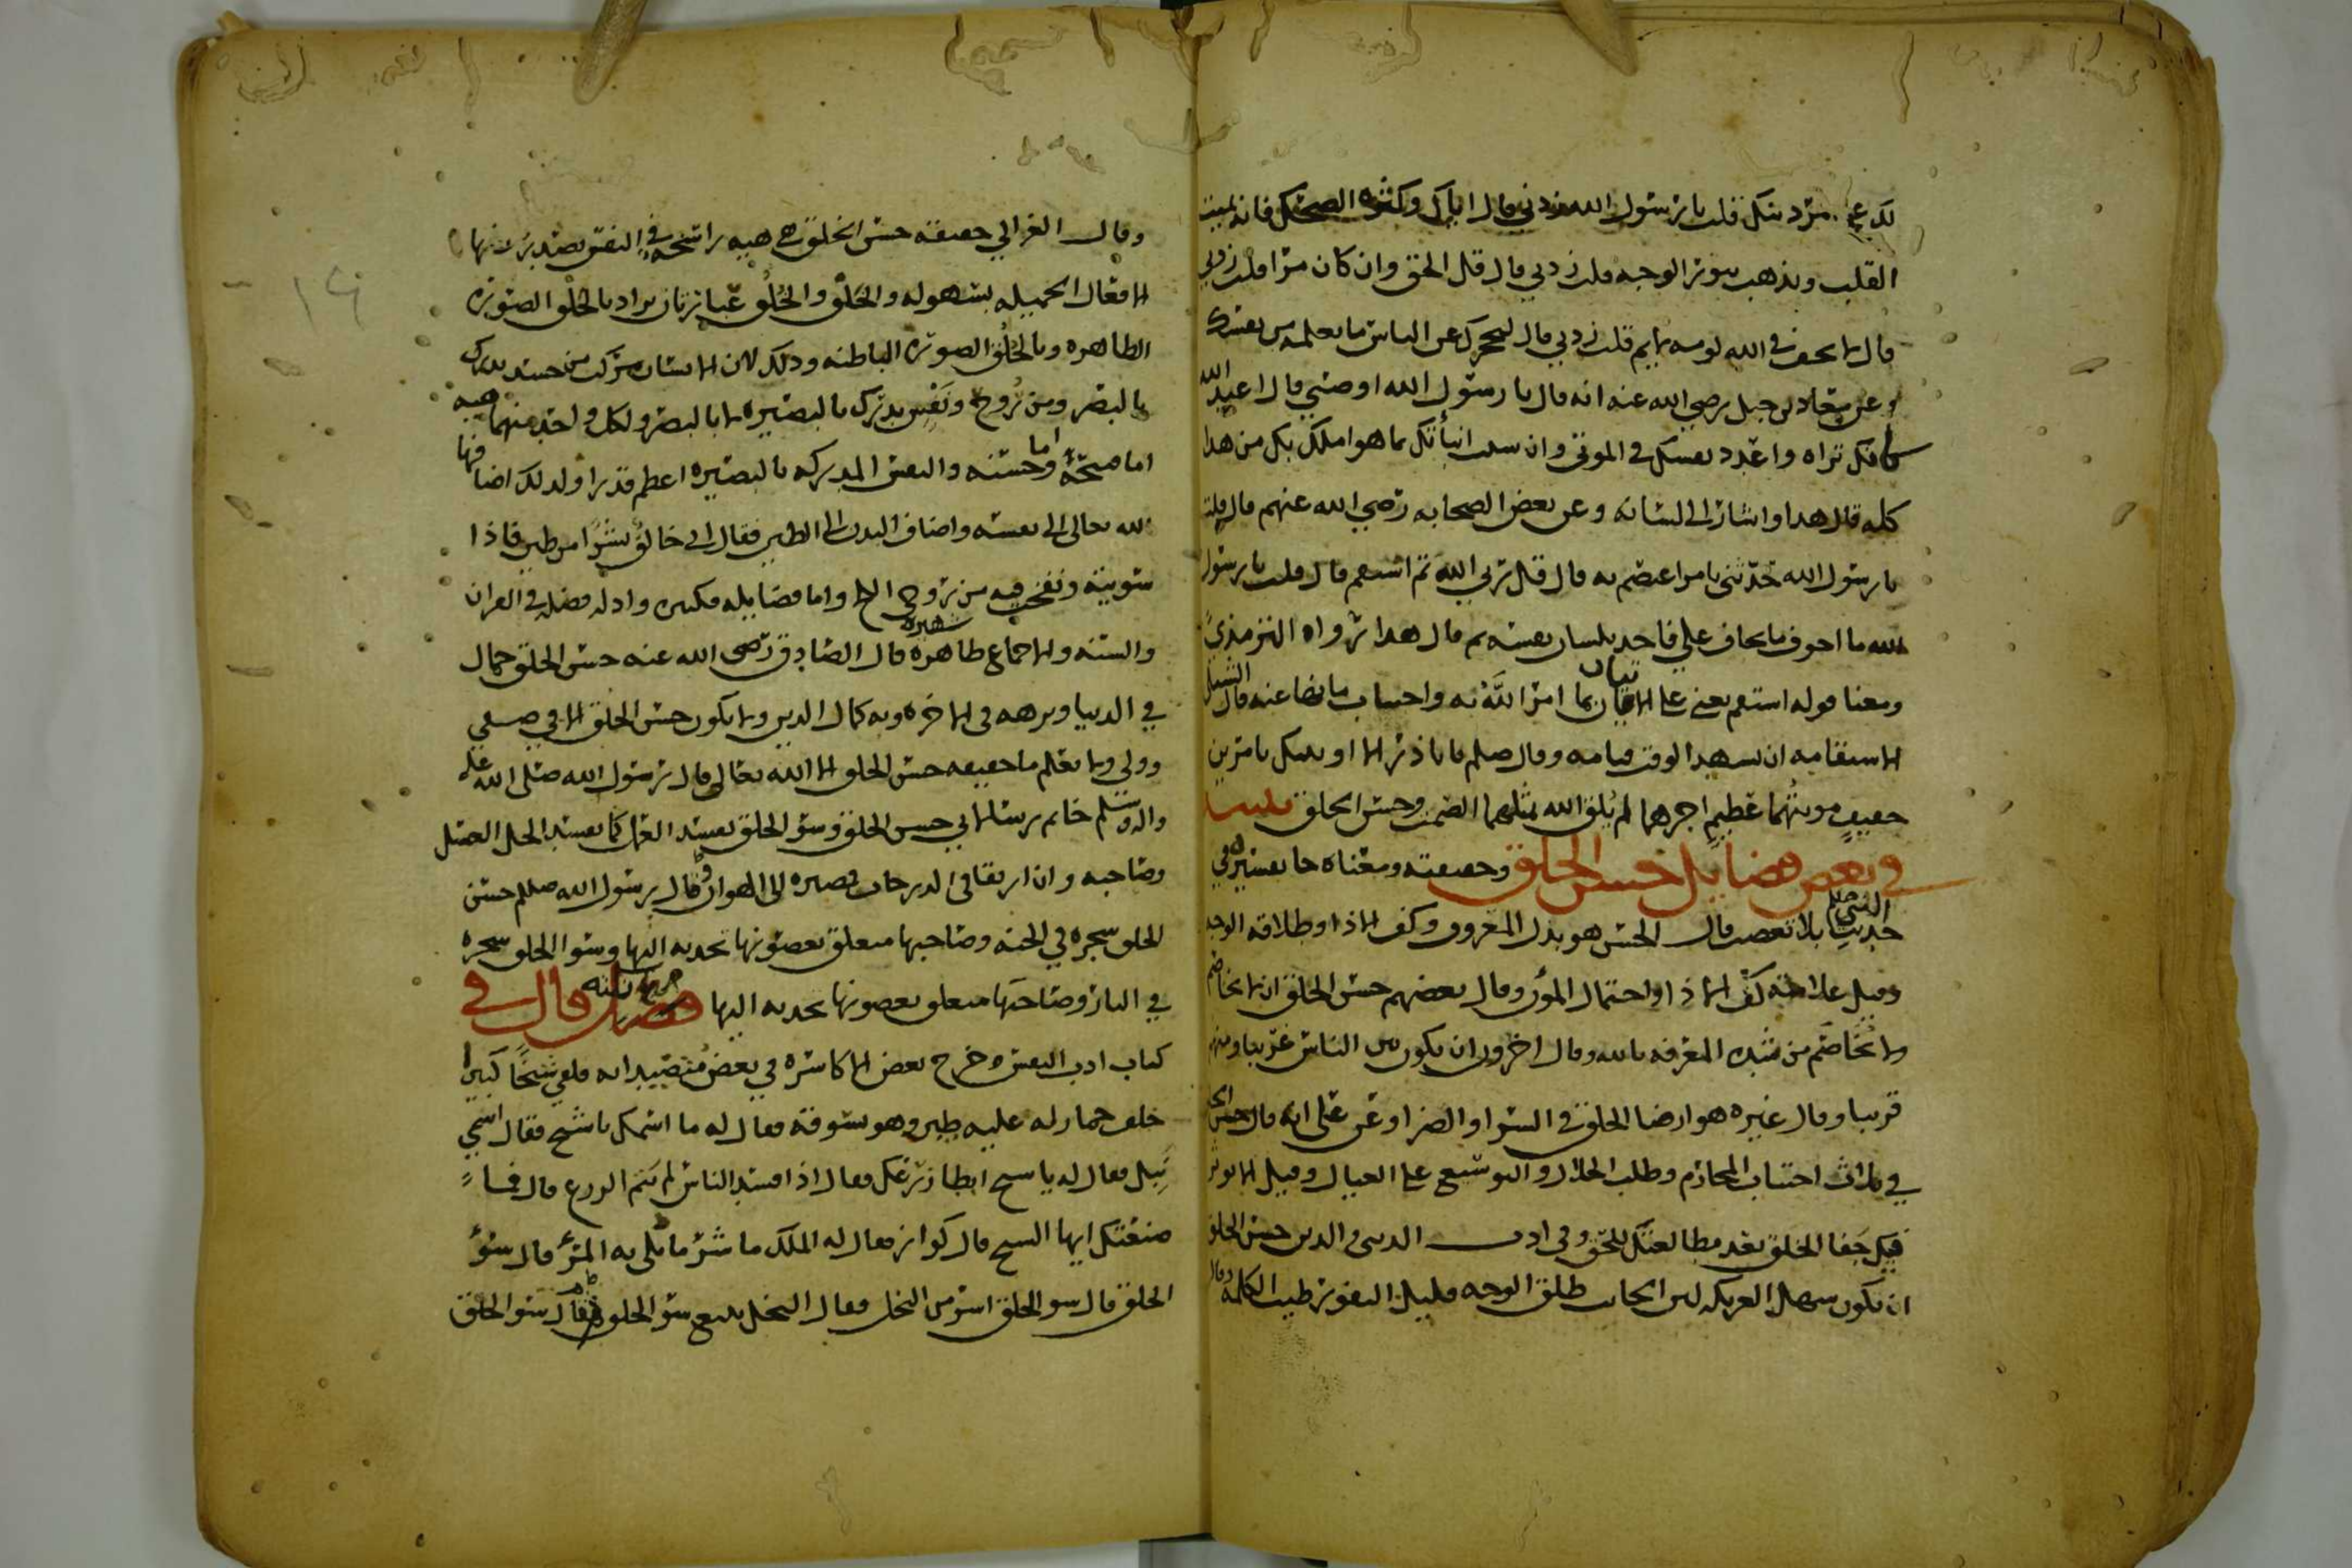 لك على مر دينك قلت يا رسول الله زدني قال اياك وكثره الضحك فانه يميت
القلب ويذهب بنور الوجه قلت زدني قال قل الحق وان كان مرا قلت زدني
قال لا تخف في الله لومه لايم قلت زدني قال ليحجزك عن الناس ما تعلمه من نفسك
وعن معاذ بن جبل رضي الله عنه انه قال يا رسول الله اوصني قال اعبد الله
كانك تراه واعدد نفسك في الموتى وان شئت انبأتك بما هو املك بك من هذا
كله قال هذا واشار الى لسانه وعن بعض الصحابه رضي الله عنهم قال قلت
يا رسول الله حدثني بامر اعتصم به قال قل ربي الله ثم استقم قال قلت يا رسول
الله ما اخوف ما يخاف علي فاخذ بلسان نفسه ثم قال هذا رواه الترمذي
ومعنا قوله استقم يعني على الاتيان بما امر الله به واجتناب ما نها عنه قال الشبلي
الاستقامه ان تشهد الوقت قيامه وقال صلم يا با ذر الا اونبيك بامرين
خفيف مونتهما عظيم اجرهما لم يلق الله بمثلهما الصمت وحسن الخلق
في بعض فضايل حسن الخلق وحقيقته ومعناه جا تفسيره في
حديث النبي صلم بلا تعصب قال الحسن هو بذل المعروف وكف الاذا وطلاقه الوجه
وقيل علامته كف الاذا واحتمال المؤن وقال بعضهم حسن الخلق ان لا يخاصم
ولا يخاصم من شده المعرفه بالله وقال اخرون ان يكون من الناس قريبا وبينهم
غريبا وقال غيره هو ارضا الخلق في السرا والضرا وعن علي انه قال حسن الخلق
في ثلاث اجتناب المحارم وطلب الحلال والتوسع على العيال وقيل الا يوثر
فيك جفا الخلق بعد مطالعتك للحق وفي ادب الدنيا والدين حسن الخلق
ان يكون سهل العريكه لين الجانب طلق الوجه قليل النفور طيب الكلمه
وقال الغزالي حقيقه حسن الخلق هي هيه راسخه في النفس تصدر عنها
الافعال الجميله بسهوله والخَلْق والخُلُق عبارتان يراد بالخلق الصوره
الظاهره وبالخُلُق الصوره الباطنه وذلك لان الانسان مركب من جسد يدرك
بالبصر ومن روح ونفس يدرك بالبصيره لا بالبصر ولكل واحد منهما هيه
اما قبيحة واما حسنه والنفس المدركه بالبصيره اعظم قدرا ولذلك اضافها
الله تعالى الى نفسه واضاف البدن الى الطين فقال اني خالق بشرا من طين فاذا
سويته ونفخت فيه من روحي الخ واما فضايله فكثيره وادله فضله في القران
والسنه والاجماع ظاهره شهيره قال الصادق رضي الله عنه حسن الخلق جمال
في الدنيا ونزهه في الاخره وبه كمال الدين ولا يكون حسن الخلق الا في صفي
وولي ولا يعلم ما حقيقه حسن الخلق الا الله تعالى قال رسول الله صلى الله عليه
واله وسلم خاتم رسالاتي حسن الخلق وسو الخلق يفسد العمل كما يفسد الخل العسل
وصاحبه وان ارتقا في الدرجات مصيره الى الهوان وقال رسول الله صلم حسن
الخلق شجره في الجنه وصاحبها متعلق بغصونها تجذبه اليها وسو الخلق شجره
في النار وصاحبها متعلق بغصونها تجذبه اليها فصل قال في
كتاب ادب النفس خرج بعض الاكاسره في بعض متصيداته فلقي شيخا كبيرا
خلف حمار له عليه طين وهو يسوقه فقال له ما اسمك يا شيخ فقال اسمي
نبيل فقال له يا شيخ ابطا زرعك فقال اذا افسد الناس لم يتم الورع قال فما
صنعتك ايها الشيخ قال كواز فقال له الملك ما شر ما بلي به المرء قال سوء
الخلق قال سو الخلق اشر من البخل فقال البخل يتبع سو الخلق فقال سو الخلق